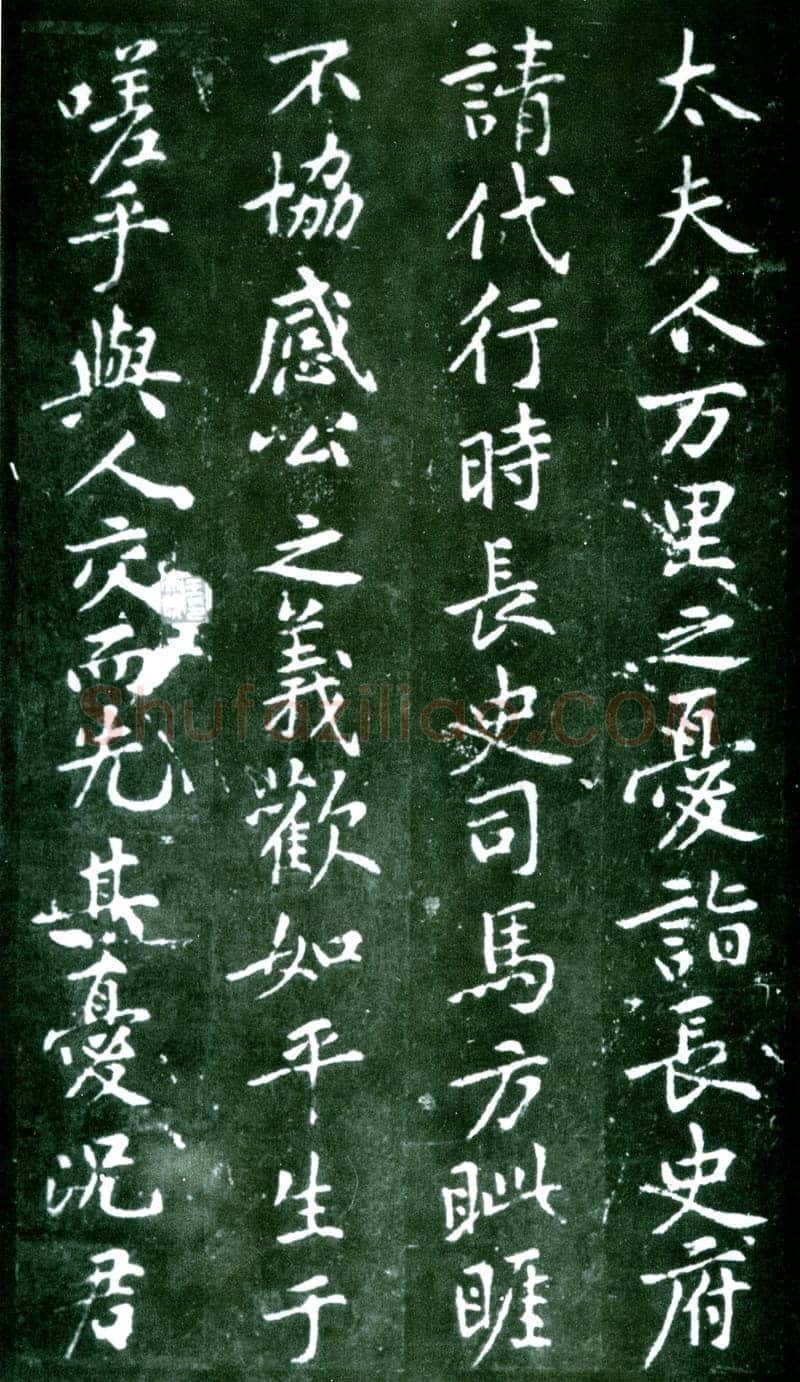 太夫人万里之憂詣長史府
請代行時長史司馬方眦睚
不協感公之義歡如平生于
嗟乎與人交而先其憂况君
Shufaziliao.COM